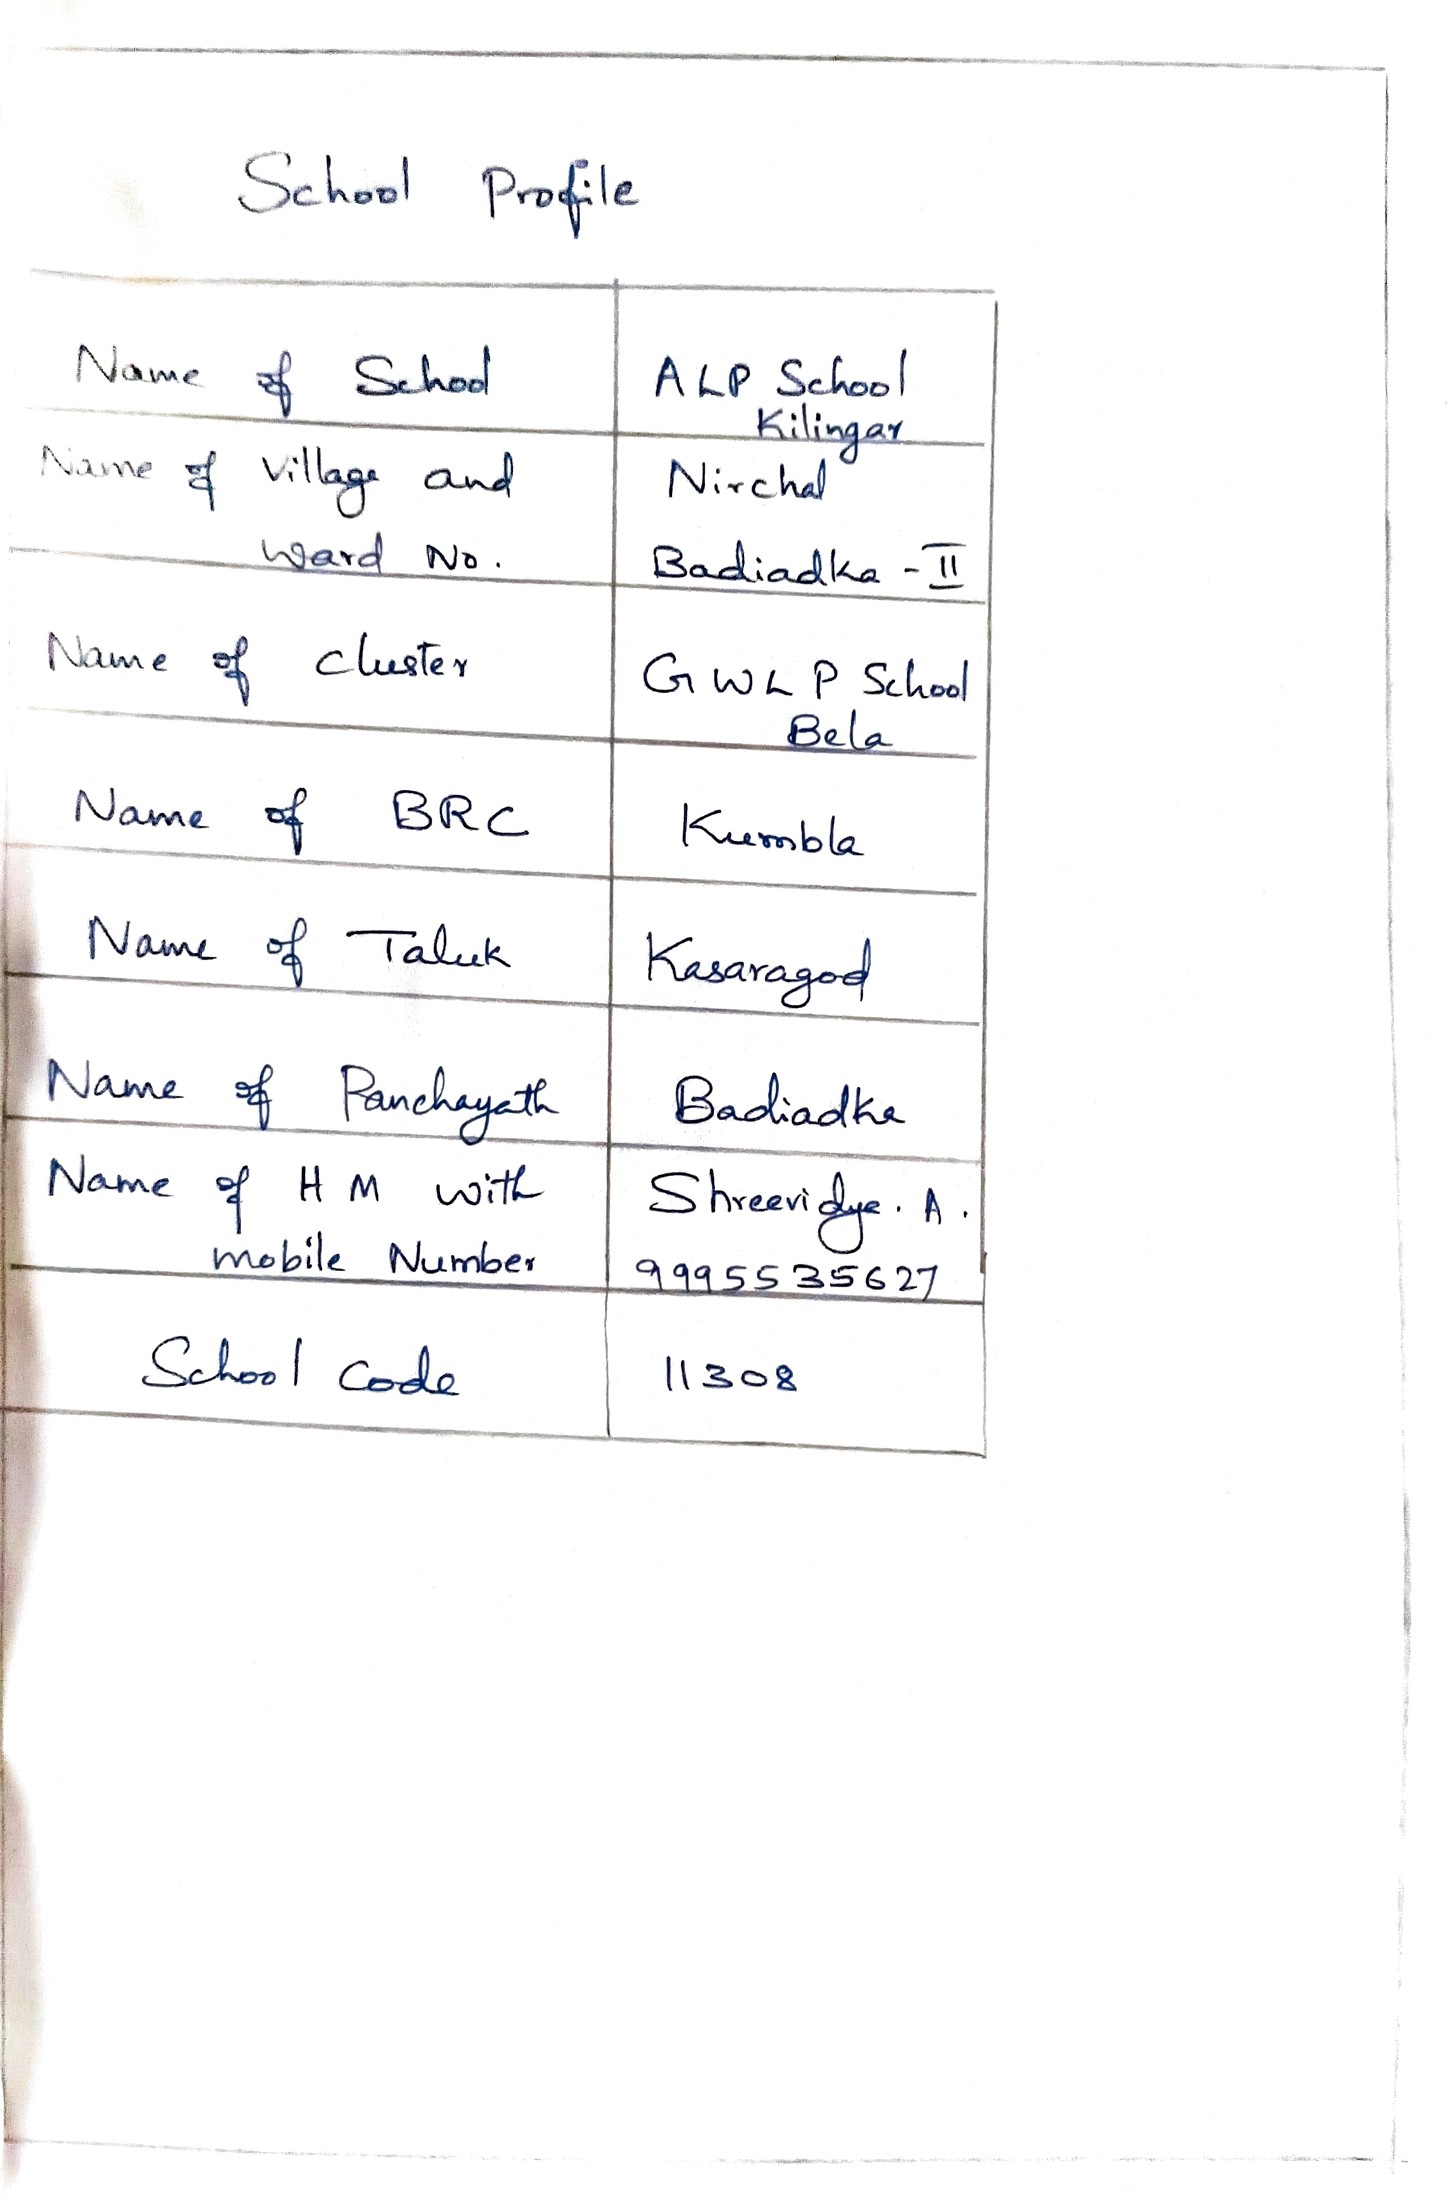 School Profile
Name of School
ALP School
Kilingar
Name of Village and
Nirchal
Ward No.
Badiadka - II
Name of cluster
GWLP School
Bela
Name of BRC
Kumbla
Name of Taluk
Kasaragod
Name of Panchayath
Badiadka
Name of HM with
Shreevidya. A.
mobile Number
9995535627
School Code
11308